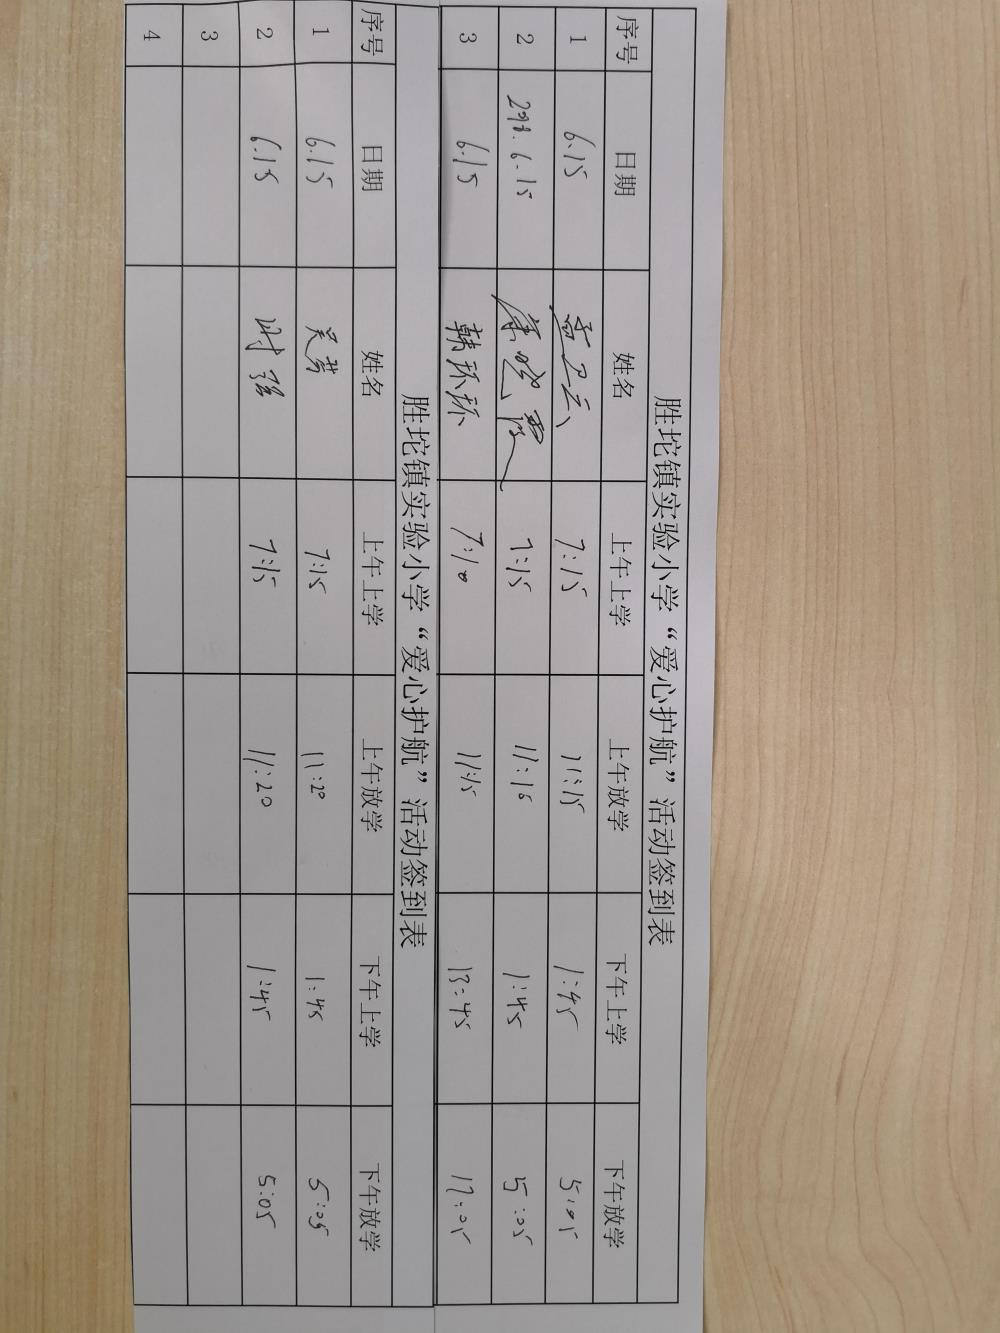 胜坨镇实验小学“爱心护航”活动签到表
序号 日期 姓名 上午上学 上午放学 下午上学 下午放学
1 6.15 7:15 11:15 1:45 5:05
2 6.15 7:15 11:16 1:45 5:05
3 6.15 韩环环 7:10 11:15 13:45 17:05
胜坨镇实验小学“爱心护航”活动签到表
序号 日期 姓名 上午上学 上午放学 下午上学 下午放学
1 6.15 吴芳 7:15 11:20 1:45 5:05
2 6.15 时强 7:15 11:20 1:45 5:05
3
4